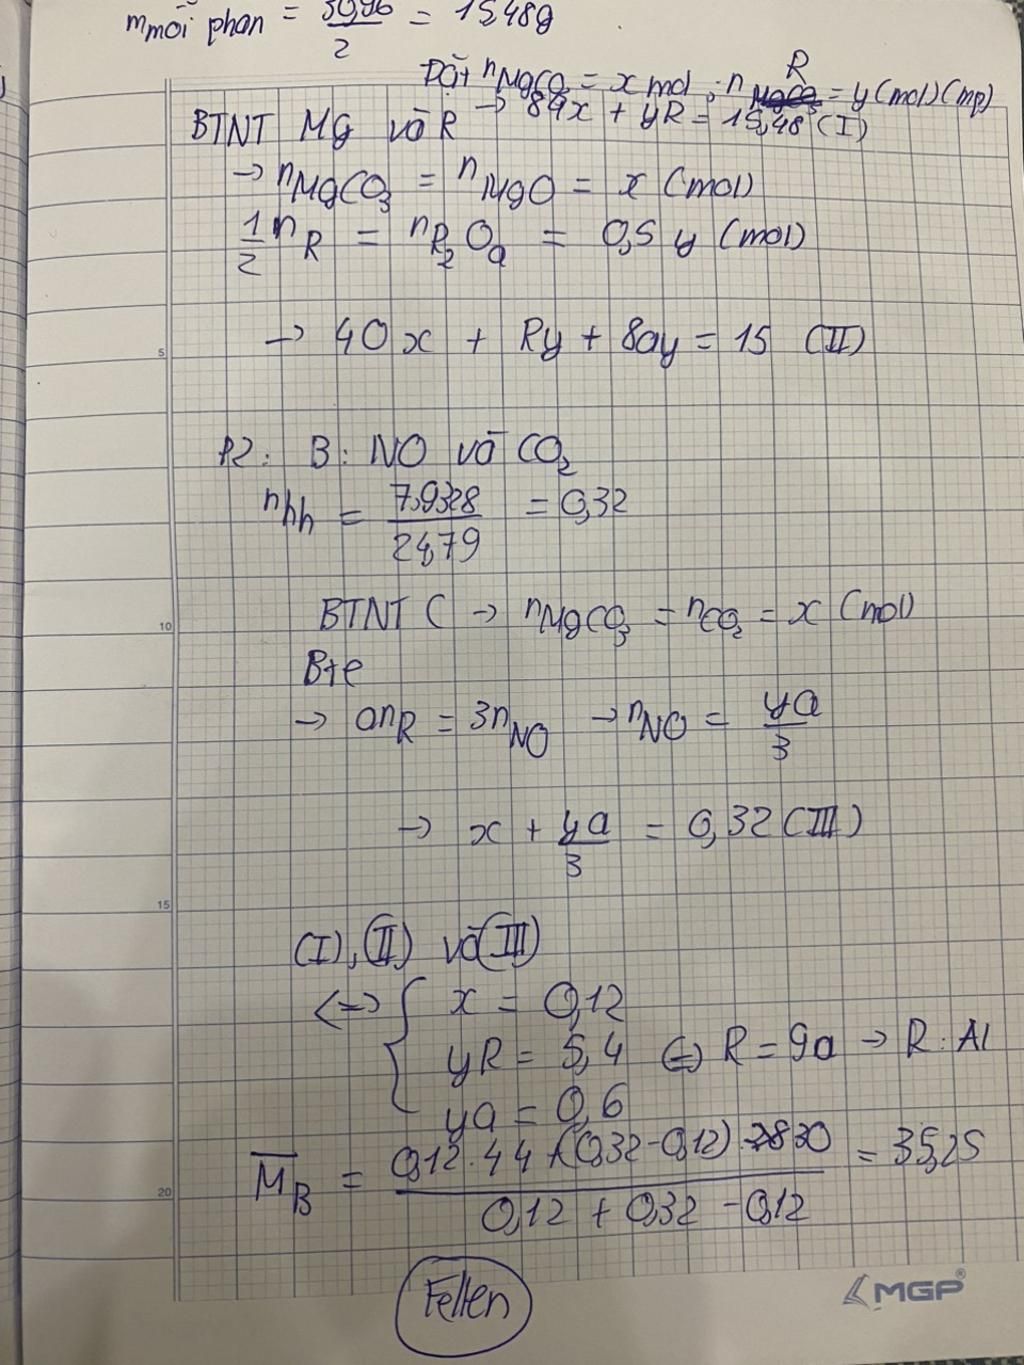 m mỗi phan = 30,96 / 2 = 15,48g
Đặt nMgCO₃ = x mol ; nR = y (mol) (mp)
→ 84x + yR = 15,48 (I)
BTNT Mg và R
→ nMgCO₃ = nMgO = x (mol)
1/2 nR = nR₂Oₐ = 0,5 y (mol)
→ 40x + Ry + 8ay = 15 (II)
5
P2: B: NO và CO₂
nhh = 7,9328 / 24,79 = 0,32
BTNT C → nMgCO₃ = nCO₂ = x (mol)
10
Bte
→ anR = 3nNO → nNO = ya/3
→ x + ya/3 = 0,32 (III)
15
(I), (II) và (III)
<=> { x = 0,12
yR = 5,4 <=> R = 9a → R: Al
ya = 0,6
M̅B = 0,12.44 + (0,32 - 0,12).30 / 0,12 + 0,32 - 0,12 = 35,25
20
Fellen
MGP®